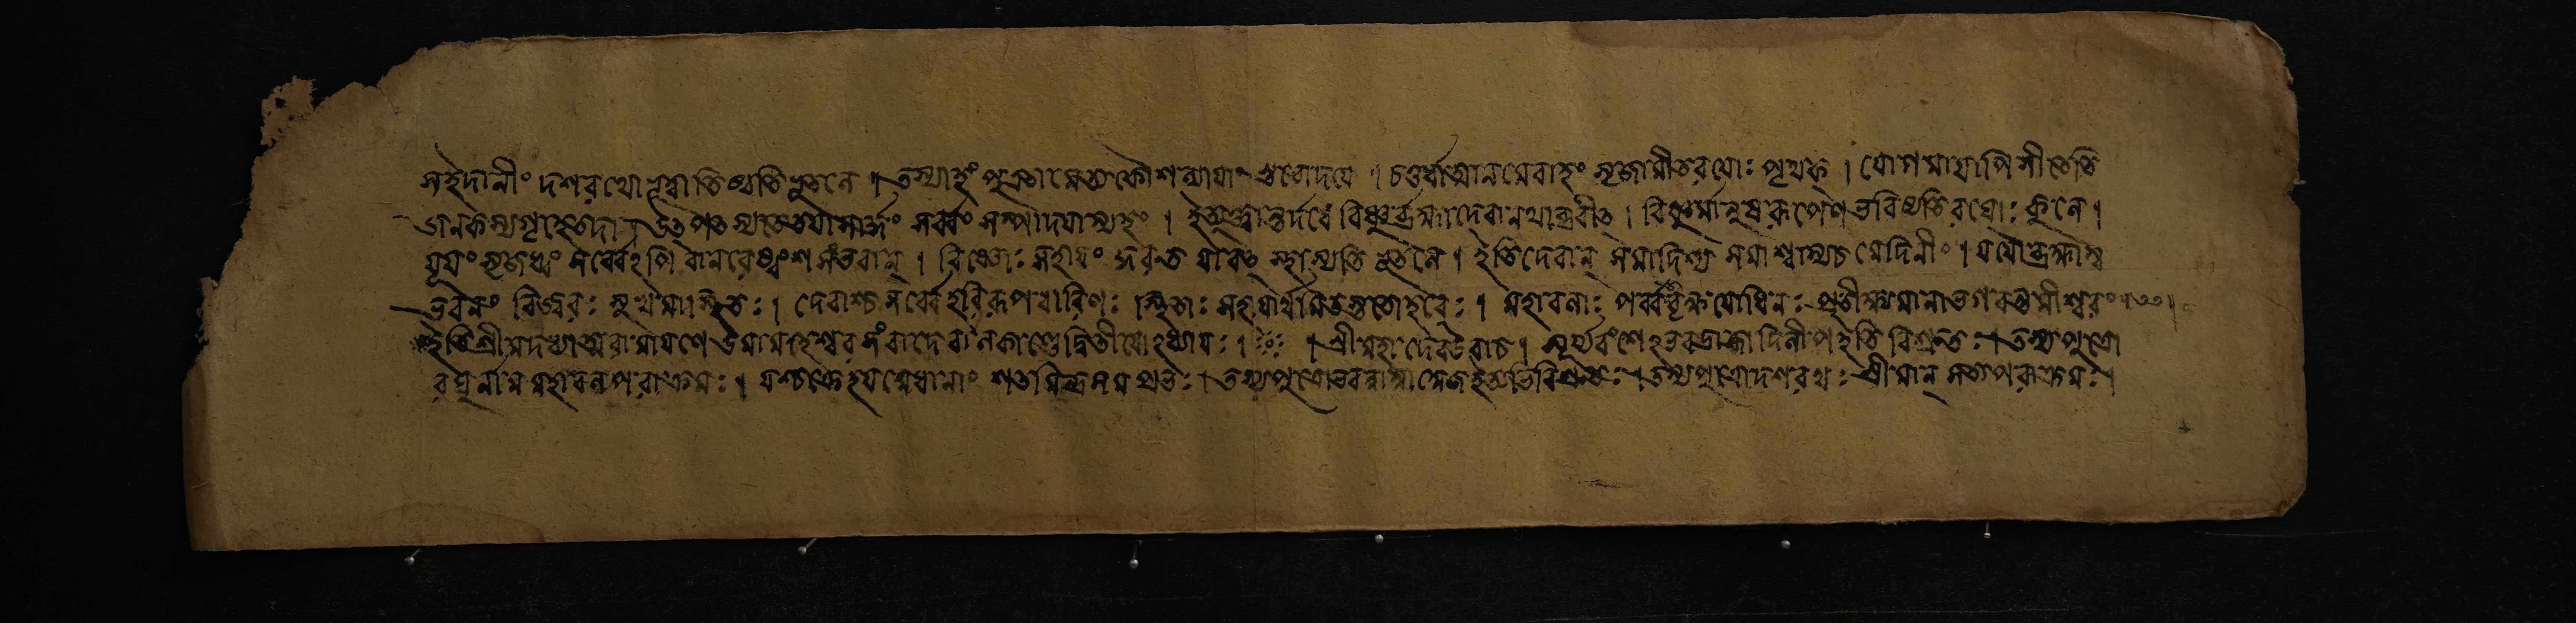 সইদানীং দশরথো ভূত্বা তিষ্ঠতি ভূতলে । তস্যাহং পুত্রতামেত্য কৌশল্যায়াং শুভোদয়ে । চতুর্দ্ধাত্মানমেবাহং সৃজামীতরয়োঃ পৃথক্ । যোগমায়াপি সীতেতি
জনকস্য গৃহে তদা । উৎপৎস্যতে তয়া সার্দ্ধং সর্ব্বং সম্পাদয়াম্যহং । ইত্যুক্ত্বান্তর্দধে বিষ্ণুর্ব্রহ্মা দেবানথাব্রবীৎ । বিষ্ণুর্মানুষরূপেণ ভবিষ্যতি রঘোঃ কুলে ।
যূয়ং সৃজধ্বং সর্ব্বেঽপি বানরেষ্বংশসম্ভবান্ । বিষ্ণোঃ সহায়ং কুরুত যাবৎ স্থাস্যতি ভূতলে । ইতি দেবান্ সমাদিশ্য সমাশ্বাস্য চ মেদিনীং । যযৌ ব্রহ্মা স্ব
ভবনং বিজ্বরঃ সুখমাস্থিতঃ । দেবাশ্চ সর্ব্বে হরিরূপধারিণঃ স্থিতাঃ সহায়ার্থমিতস্ততো হরেঃ । মহাবলাঃ পর্ব্বতবৃক্ষযোধিনঃ প্রতীক্ষমানা ভগবন্তমীশ্বরং ॥
ইতি শ্রীমদধ্যাত্মরামায়ণে উমামহেশ্বরসংবাদে বালকাণ্ডে দ্বিতীয়োঽধ্যায়ঃ । শ্রীমহাদেব উবাচ । সূর্য্যবংশেঽভবদ্রাজা দিলীপ ইতি বিশ্রুতঃ । তস্য পুত্রো
রঘুর্নাম মহাবলপরাক্রমঃ । যশ্চক্রে হয়মেধানাং শতমিন্দ্রসমপ্রভঃ । তস্য পুত্রোভবন্নাম্না হ্যজ ইত্যভিবিশ্রুতঃ । তস্য পুত্রো দশরথঃ শ্রীমান্ সত্যপরাক্রমঃ ।